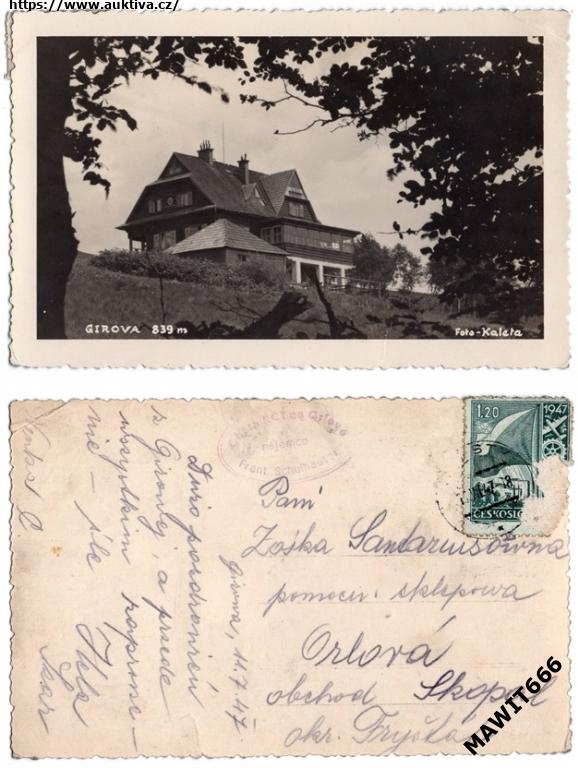 https://www.auktiva.cz/
GIROVA 839 m
Foto-Kaleta
Chata KČT na Girové
nájemce
Frant.
1,20
1947
ČESKOSLO
Pani
Zośka Santariusówna
pomocn. sklepowa
Orlová
obchod Skopal
okr. Fryšta
Girowa, 11.7.47.
Dużo pozdrowień
z Girowej, a przede
wszystkim
nie – śle
Hela
MAWIT666